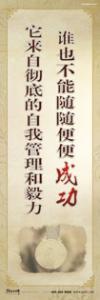 谁也不能随随便便成功
它来自彻底的自我管理和毅力